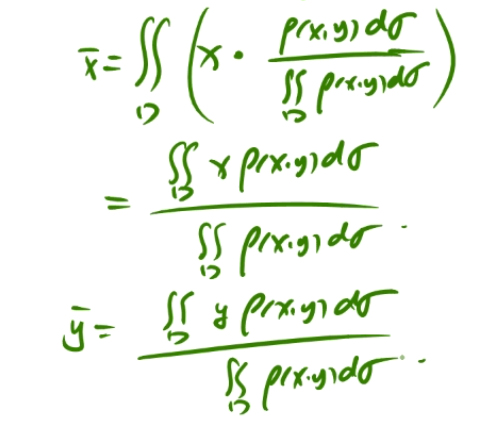 x̄ = ∬_D ( x · ρ(x,y)dσ / ∬_D ρ(x,y)dσ )
= ∬_D x ρ(x,y)dσ / ∬_D ρ(x,y)dσ .
ȳ = ∬_D y ρ(x,y)dσ / ∬_D ρ(x,y)dσ .